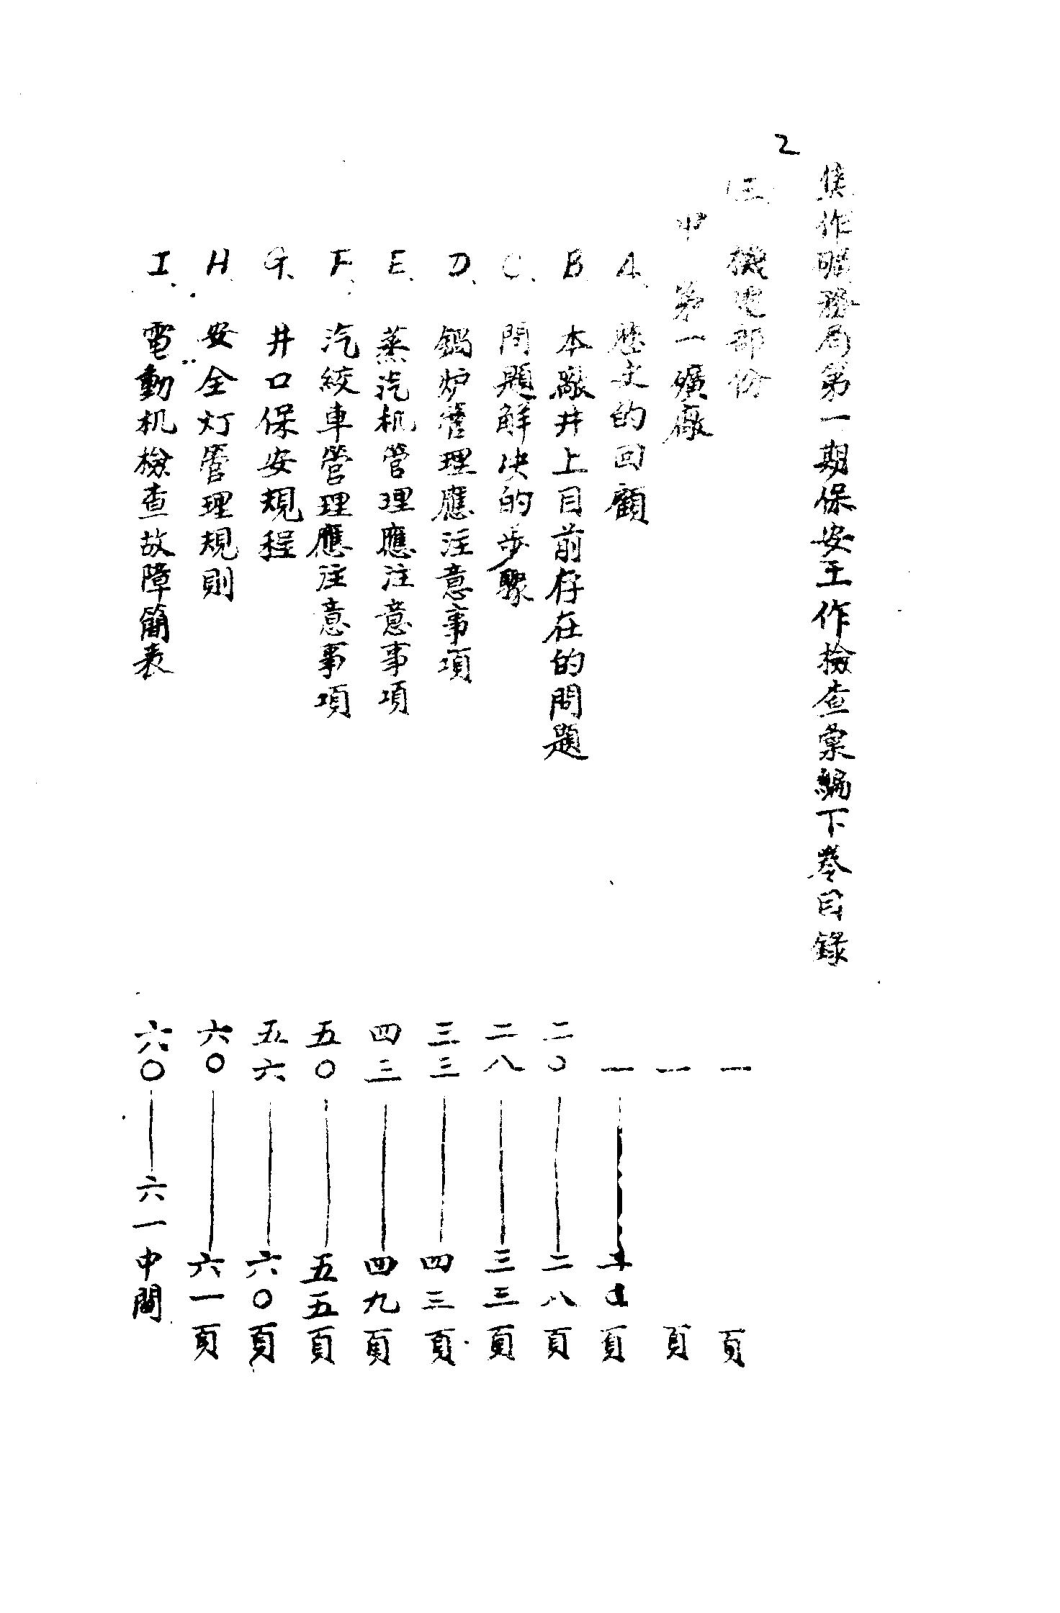 2
焦作礦務局第一期保安工作檢查彙編下卷目錄
三 機電部份 一 頁
甲 第一礦廠 一 頁
A. 歷史的回顧 一 —— 頁
B 本廠井上目前存在的問題 二〇——二八頁
C. 問題解決的步驟 二八——三三頁
D. 鍋炉管理應注意事項 三三——四三頁
E. 蒸汽机管理應注意事項 四三——四九頁
F. 汽絞車管理應注意事項 五〇——五五頁
G. 井口保安規程 五六——六〇頁
H. 安全灯管理規則 六〇——六一頁
I. 電動机檢查故障簡表 六〇——六一中間